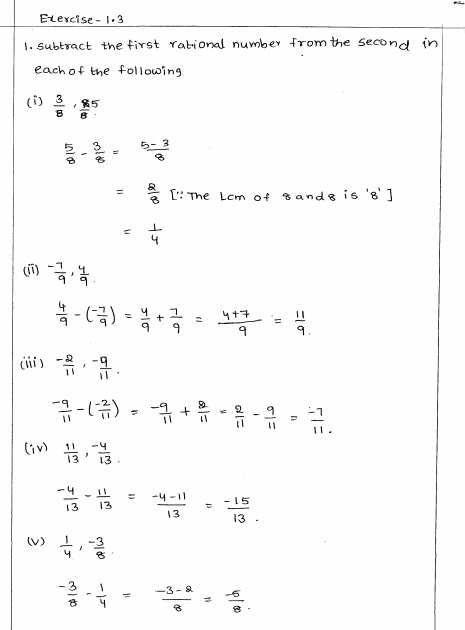 Exercise - 1.3
1. subtract the first rational number from the second in
each of the following
(i) 3/8 , 5/8.
5/8 - 3/8 = 5-3/8
= 2/8 [∵ The Lcm of 8 and 8 is '8']
= 1/4
(ii) -7/9, 4/9.
4/9 - (-7/9) = 4/9 + 7/9 = 4+7/9 = 11/9.
(iii) -2/11, -9/11.
-9/11 - (-2/11) = -9/11 + 2/11 = 2/11 - 9/11 = -7/11.
(iv) 11/13, -4/13.
-4/13 - 11/13 = -4-11/13 = -15/13.
(v) 1/4, -3/8.
-3/8 - 1/4 = -3-2/8 = -5/8.